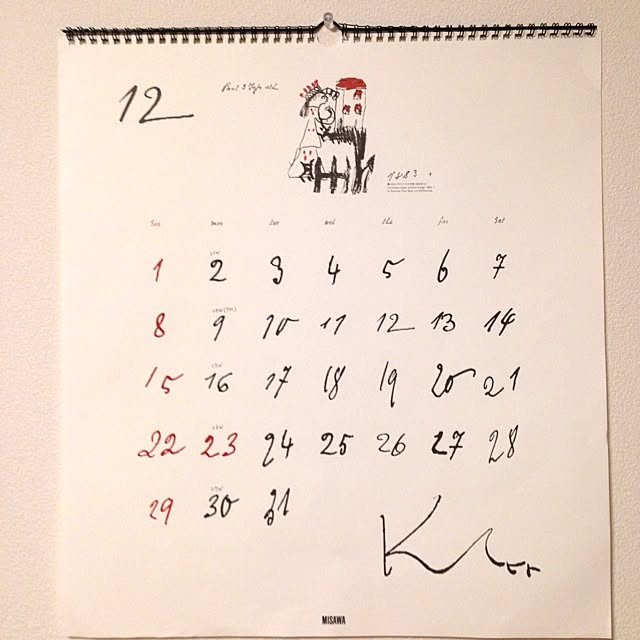 12
1883.
Sun mon tue wed thu fri sat
1 2 3 4 5 6 7
8 9 10 11 12 13 14
15 16 17 18 19 20 21
22 23 24 25 26 27 28
29 30 31
Klee
MISAWA